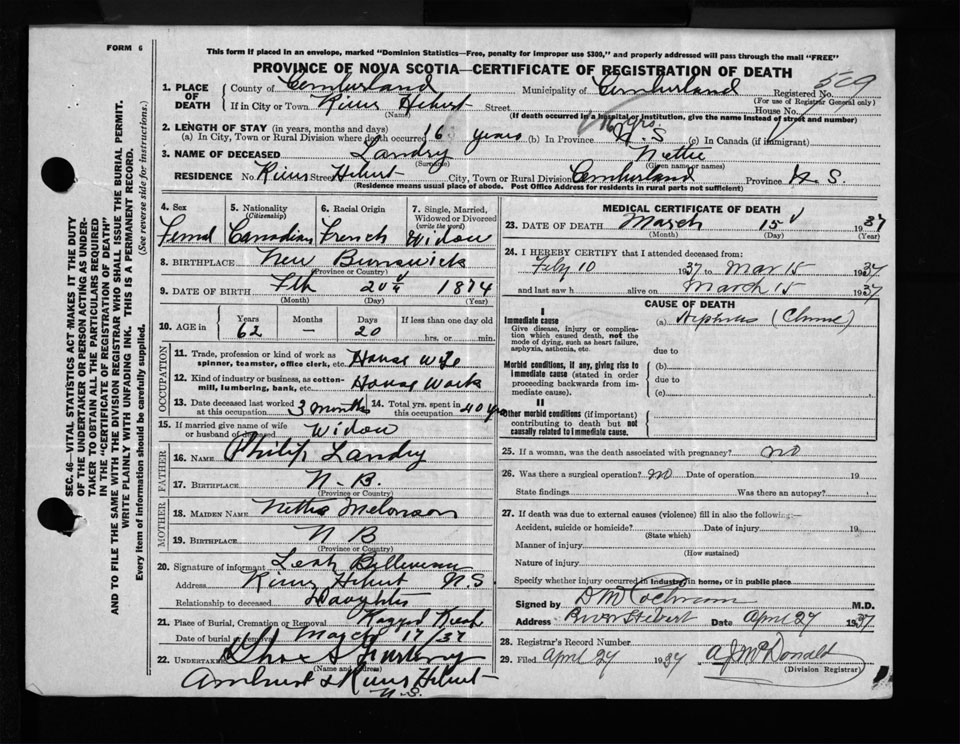 FORM 6
This form if placed in an envelope, marked "Dominion Statistics—Free, penalty for improper use $300," and properly addressed will pass through the mail "FREE"
PROVINCE OF NOVA SCOTIA—CERTIFICATE OF REGISTRATION OF DEATH
509
1. PLACE OF DEATH County of Cumberland Municipality of Cumberland Registered No.
(For use of Registrar General only)
If in City or Town River Hebert Street House No.
(Name) (If death occurred in a hospital or institution, give the name instead of street and number)
2. LENGTH OF STAY (in years, months and days)
(a) In City, Town or Rural Division where death occurred 16 years (b) In Province 16 yrs. N.S (c) In Canada (if immigrant)
3. NAME OF DECEASED Landry Nettie
(Surname) (Given name or names)
RESIDENCE No. River Street Hebert City, Town or Rural Division Cumberland Province N.S.
(Residence means usual place of abode. Post Office Address for residents in rural parts not sufficient)
4. Sex
Femal
5. Nationality
(Citizenship)
Canadian
6. Racial Origin
French
7. Single, Married, Widowed or Divorced
(write the word)
Widow
8. BIRTHPLACE New Brunswick
(Province or Country)
9. DATE OF BIRTH Feb 20 1874
(Month) (Day) (Year)
10. AGE in Years Months Days If less than one day old
62 — 20 hrs. or min.
OCCUPATION
11. Trade, profession or kind of work as spinner, teamster, office clerk, etc. House Wife
12. Kind of industry or business, as cotton-mill, lumbering, bank, etc. House Work
13. Date deceased last worked at this occupation 3 months
14. Total yrs. spent in this occupation 40 yrs
15. If married give name of wife or husband of deceased Widow
FATHER
16. NAME Philip Landry
17. BIRTHPLACE N-B.
(Province or Country)
MOTHER
18. MAIDEN NAME Nettie Melonson
19. BIRTHPLACE N B
(Province or Country)
20. Signature of informant Leah
Address River Hebert N.S.
Relationship to deceased Daughter
21. Place of Burial, Cremation or Removal Ragged Reef
Date of burial or removal March 17/37
22. UNDERTAKER Chas S
(Name and address)
Amherst & River Hebert
N.S.
MEDICAL CERTIFICATE OF DEATH
23. DATE OF DEATH March 15 1937
(Month) (Day) (Year)
24. I HEREBY CERTIFY that I attended deceased from:
Feby 10 1937 to Mar 15 1937
and last saw h alive on March 15 1937
CAUSE OF DEATH
I
Immediate cause
Give disease, injury or complication which caused death, not the mode of dying, such as heart failure, asphyxia, asthenia, etc.
(a) Nephritis (Chronic)
due to
Morbid conditions, if any, giving rise to immediate cause (stated in order proceeding backwards from immediate cause).
(b)
due to
(c)
II
Other morbid conditions (if important) contributing to death but not causally related to immediate cause.
25. If a woman, was the death associated with pregnancy? no
26. Was there a surgical operation? no Date of operation 19
State findings Was there an autopsy?
27. If death was due to external causes (violence) fill in also the following:—
Accident, suicide or homicide? Date of injury 19
(State which)
Manner of injury
(How sustained)
Nature of injury
Specify whether injury occurred in industry in home, or in public place
Signed by D M Cochrane M.D.
Address River Hebert Date April 27 1937
28. Registrar's Record Number
29. Filed April 27 1937 A J McDonald
(Division Registrar)
SEC. 46—VITAL STATISTICS ACT MAKES IT THE DUTY OF THE UNDERTAKER OR PERSON ACTING AS UNDERTAKER TO OBTAIN ALL THE PARTICULARS REQUIRED IN THE "CERTIFICATE OF REGISTRATION OF DEATH" AND TO FILE THE SAME WITH THE DIVISION REGISTRAR WHO SHALL ISSUE THE BURIAL PERMIT.
WRITE PLAINLY WITH UNFADING INK. THIS IS A PERMANENT RECORD.
Every item of information should be carefully supplied. (See reverse side for instructions.)